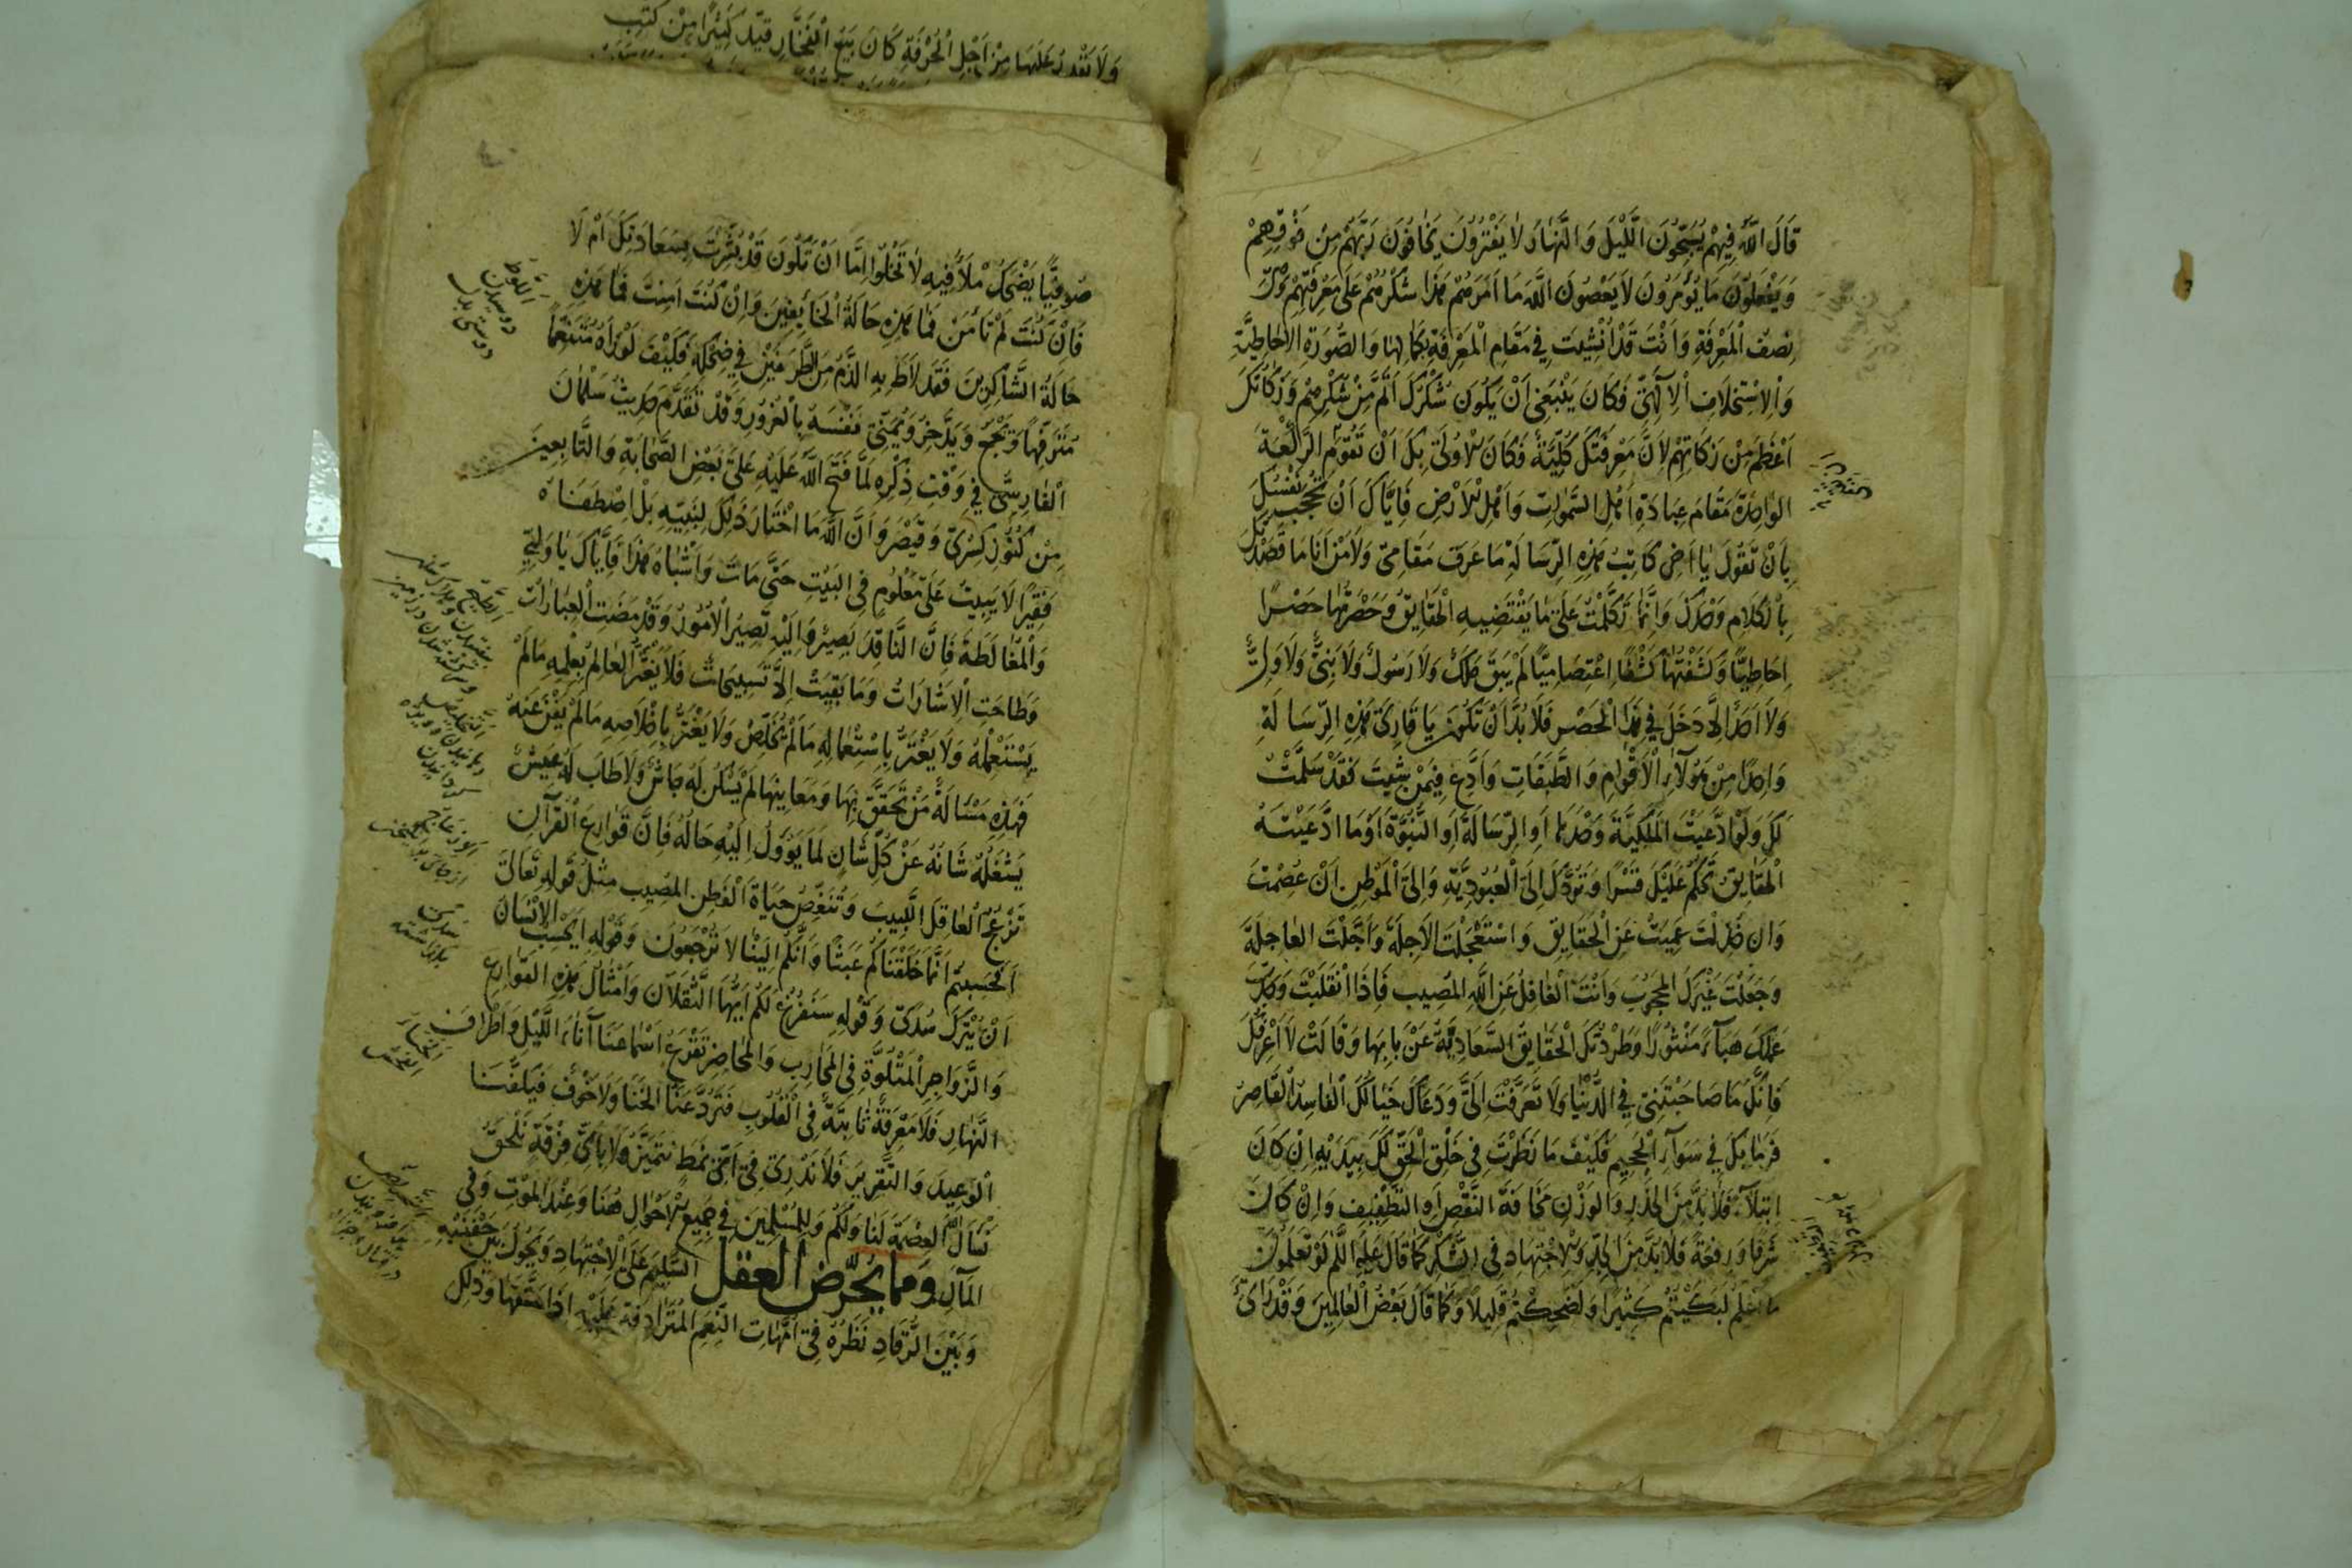 قَالَ اللّٰهُ فِيهِمْ يُسَبِّحُونَ الَّليْلَ وَالنَّهَارَ لَا يَفْتُرُونَ يَخَافُونَ رَبَّهُمْ مِنْ فَوْقِهِمْ
وَيَفْعَلُونَ مَا يُؤْمَرُونَ لَا يَعْصُونَ اللّٰهَ مَا اَمَرَهُمْ هٰذَا شُكْرُهُمْ عَلَى مَعْرِفَتِهِمْ
نِصْفَ الْمَعْرِفَةِ وَاَنْتَ قَدْ اُنْشِيتَ فِي مَقَامِ الْمَعْرِفَةِ بِكَمَالِهَا وَالصُّورَةِ الْاِحَاطِيَّةِ
وَالْاِسْتِخْلَافِ الْاِلٰهِيِّ فَكَانَ يَنْبَغِي اَنْ يَكُونَ شُكْرُكَ اَتَمَّ مِنْ شُكْرِهِمْ وَزَكَاتُكَ
اَعْظَمَ مِنْ زَكَاتِهِمْ لِاَنَّ مَعْرِفَتَكَ كُلِّيَّةٌ فَكَانَ الْاَوْلَى بِكَ اَنْ تَقُومَ الرَّكْعَةَ
الْوَاحِدَةَ مَقَامَ عِبَادَةِ اَهْلِ السَّمٰوَاتِ وَاَهْلِ الْاَرْضِ فَاِيَّاكَ اَنْ تَحْجُبَ نَفْسَكَ
بِاَنْ تَقُولَ يَا اَخِي كَاتِبُ هٰذِهِ الرِّسَالَةِ مَا عَرَفَ مَقَامِي وَلَا مَنْ اَنَا مَا قَصَدْتُكَ
بِالْكَلَامِ وَحْدَكَ وَاِنَّمَا تَكَلَّمْتُ عَلَى مَا يَقْتَضِيهِ الْحَقَايِقُ وَحَصَرْتُهَا حَصْرًا
اِحَاطِيًّا وَكَشَفْتُهَا كَشْفًا اعْتِصَامِيًّا لَمْ يَبْقَ مَلَكٌ وَلَا رَسُولٌ وَلَا نَبِيٌّ وَلَا وَلِيٌّ
وَلَا اَحَدٌ اِلَّا دَخَلَ فِي هٰذَا الْحَصْرِ فَلَا بُدَّ اَنْ تَكُونَ يَا قَارِئَ هٰذِهِ الرِّسَالَةِ
وَاحِدًا مِنْ هٰؤُلَاءِ الْاَقْوَامِ وَالطَّبَقَاتِ وَادَّعِ فِيمَنْ شِيتَ فَقَدْ سَلَّمْتُ
لَكَ وَلَوْ ادَّعَيْتَ الْمَلَكِيَّةَ وَحْدَهَا اَوِ الرِّسَالَةَ اَوِ النُّبُوَّةَ اَوْ مَا ادَّعَيْتَهُ
الْحَقَايِقُ تَحْكُمُ عَلَيْكَ قَسْرًا وَتَرُدُّكَ اِلَى الْعُبُودِيَّةِ وَاِلَى الْمَوْطِنِ اِنْ عُصِمْتَ
وَاِنْ خُذِلْتَ عَمِيتَ عَنِ الْحَقَايِقِ وَاسْتَعْجَلْتَ الْآجِلَةَ وَاَجَّلْتَ الْعَاجِلَةَ
وَجَعَلْتَ غَيْرَكَ الْمَحْجُوبَ وَاَنْتَ الْغَافِلُ عَنِ اللّٰهِ الْمُصِيبِ فَاِذَا انْقَلَبْتَ
عَمَلَكَ هَبَاءً مَنْثُورًا وَطَرَدَتْكَ الْحَقَايِقُ السَّعَادِيَّةُ عَنْ بَابِهَا وَقَالَتْ لَا اَعْرِفُكَ
فَاِنَّكَ مَا صَاحَبْتَنِي فِي الدُّنْيَا وَلَا تَعَرَّفْتَ اِلَيَّ وَدَعَاكَ خَيَالُكَ الْفَاسِدُ الْقَاصِرُ
فَرَمَا بِكَ فِي سَوَاءِ الْجَحِيمِ فَكَيْفَ مَا نَظَرْتَ فِي خَلْقِ الْحَقِّ لَكَ بِيَدَيْهِ اِنْ كَانَ
ابْتِلَاءً فَلَا بُدَّ مِنَ الْحَذَرِ وَالْوَزْنِ مَخَافَةَ النَّقْصِ اَوِ التَّطْفِيفِ وَاِنْ كَانَ
شَرَفًا وَرِفْعَةً فَلَا بُدَّ مِنَ الْجِدِّ وَالْاِجْتِهَادِ فِي الشُّكْرِ كَمَا قَالَ عَلَيْهِ السَّلٰمُ لَوْ تَعْلَمُونَ
مَا اَعْلَمُ لَبَكَيْتُمْ كَثِيرًا وَلَضَحِكْتُمْ قَلِيلًا وَكَمَا قَالَ بَعْضُ الْعَالِمِينَ وَقَدْ رَاَى
وَلَا تَقْدِرُ عَلَيْهَا مِنْ اَجْلِ الْحُرْفَةِ كَانَ يَبِيعُ الْفَخَّارَ قَيَّدَ كَثِيرًا مِنْ كُتُبِ
صُوفِيًّا يَضْحَكُ مِلْاَ فِيهِ لَا تَخْلُو اِمَّا اَنْ تَكُونَ قَدْ بُشِّرْتَ بِسَعَادَتِكَ اَمْ لَا
فَاِنْ كُنْتَ لَمْ تَاْمَنْ فَمَا هٰذِهِ حَالَةُ الْخَائِفِينَ وَاِنْ كُنْتَ اَمِنْتَ فَمَا هٰذِهِ
حَالَةُ الشَّاكِرِينَ فَقَدْ لَاطَ بِهِ الذَّمُّ مِنَ الطَّرَفَيْنِ فِي ضَحِكِهِ فَكَيْفَ لَوْ رَاٰهُ مُتَنَعِّمًا
مُتَرَفِّهًا وَيَجْمَعُ وَيَدَّخِرُ وَيُمَنِّي نَفْسَهُ بِالْغُرُورِ وَقَدْ تَقَدَّمَ حَدِيثُ سَلْمَانَ
الْفَارِسِيِّ فِي وَقْتِ ذِكْرِهِ لَمَّا فَتَحَ اللّٰهُ عَلَيْهِ عَلَى بَعْضِ الصَّحَابَةِ وَالتَّابِعِينَ
مِنْ كُنُوزِ كِسْرَى وَقَيْصَرَ وَاَنَّ اللّٰهَ مَا اخْتَارَ ذٰلِكَ لِنَبِيِّهِ بَلْ اِصْطَفَاهُ
فَقِيرًا لَا يَبِيتُ عَلَى مَعْلُومٍ فِي الْبَيْتِ حَتَّى مَاتَ وَاَشْبَاهُ هٰذَا فَاِيَّاكَ يَا وَلِيِّي
وَالْمُغَالَطَةَ فَاِنَّ النَّاقِدَ بَصِيرٌ وَاِلَيْهِ تَصِيرُ الْاُمُورُ وَقَدْ مَضَتِ الْعِبَارَاتُ
وَطَاحَتِ الْاِشَارَاتُ وَمَا بَقِيَتْ اِلَّا تَسْبِيحَاتٌ فَلَا يَغْتَرُّ الْعَالِمُ بِعِلْمِهِ مَا لَمْ
يَسْتَعْمِلْهُ وَلَا يَغْتَرُّ بِاسْتِعْمَالِهِ مَا لَمْ يُخْلِصْ وَلَا يَغْتَرُّ بِاِخْلَاصِهِ مَا لَمْ يَفْنَ عَنْهُ
فَهٰذِهِ مَسْاَلَةٌ مَنْ تَحَقَّقَ بِهَا وَمَعَانِيهَا لَمْ يَسْكُنْ لَهُ جَاشٌ وَلَا طَابَ لَهُ عَيْشٌ
يَشْغَلُهُ شَانُهُ عَنْ كُلِّ شَانٍ لِمَا يَؤُولُ اِلَيْهِ حَالُهُ فَاِنَّ قَوَارِعَ الْقُرْآنِ
تَزْعَجُ الْعَاقِلَ اللَّبِيبَ وَتُنَغِّصُ حَيَاةَ الْفَطِنِ الْمُصِيبِ مِثْلُ قَوْلِهِ تَعَالَى
اَفَحَسِبْتُمْ اَنَّمَا خَلَقْنَاكُمْ عَبَثًا وَاَنَّكُمْ اِلَيْنَا لَا تُرْجَعُونَ وَقَوْلِهِ اَيَحْسَبُ الْاِنْسَانُ
اَنْ يُتْرَكَ سُدًى وَقَوْلِهِ سَنَفْرُغُ لَكُمْ اَيُّهَا الثَّقَلَانِ وَاَمْثَالُ هٰذِهِ الْقَوَارِعِ
وَالزَّوَاجِرِ الْمَتْلُوَّةِ فِي الْمَحَارِبِ وَالْمَحَاضِرِ تَقْرَعُ اَسْمَاعَنَا آنَاءَ اللَّيْلِ وَاَطْرَافَ
النَّهَارِ فَلَا مَعْرِفَةٌ ثَابِتَةٌ فِي الْقُلُوبِ فَتَرُدَّ عَنَّا الْخَنَا وَلَا خَوْفٌ فَيُلَقِّنَنَا
الْوَعِيدَ وَالتَّقْرِيرَ فَلَا نَدْرِي فِي اَيِّ نَمَطٍ نَتَمَيَّزُ وَلَا بِاَيِّ فِرْقَةٍ نَلْحَقُ
نَسْاَلُ اللّٰهَ الْعِصْمَةَ لَنَا وَلَكُمْ وَلِلْمُسْلِمِينَ فِي جَمِيعِ الْاَحْوَالِ هُنَا وَعِنْدَ الْمَوْتِ وَفِي
الْمَآلِ وَمِمَّا يُحَرِّضُ الْعَقْلَ السَّلِيمَ عَلَى الْاِجْتِهَادِ وَيَحُولُ بَيْنَ جَفْنَيْهِ
وَبَيْنَ الرُّقَادِ نَظَرُهُ فِي اُمَّهَاتِ النِّعَمِ الْمُتَرَادِفَةِ عَلَيْهِ اِذَا حَقَّقَهَا وَذٰلِكَ